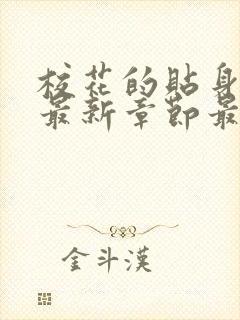 校花的貼身
最新章節最
金斗漢